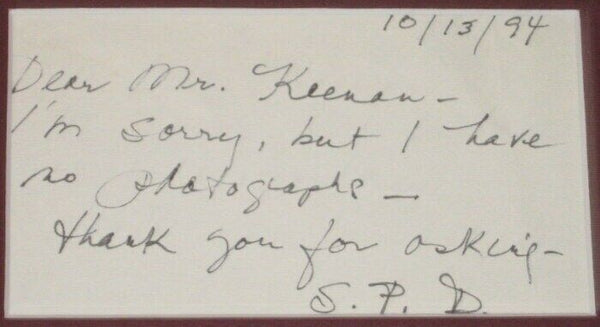 10/13/94
Dear Mr. Keenan -
I'm sorry, but I have
no photographs -
thank you for asking -
S. P. D.